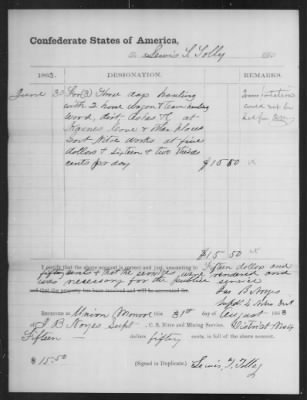 Confederate States of America,
To Lewis T. Tolly
1863. DESIGNATION. REMARKS.
June 30 For (3) Three days hauling
with 2 horse wagon & team hauling
wood, dirt, Ashes &c at
Cave & places
Govt Nitre works at five
dollars & Sixteen & two thirds
cents per day $15.50
could not be
had for
$15.50
I certify that the above account is correct and just, amounting to Fifteen dollars and
fifty cents & that the services were rendered and
was necessary for the public service
and that the property has been received and will be accounted for.
Jas B Noyes
Supt & Nitre Dist
RECEIVED at Union Monroe this 31st day of August 1863
of J B Noyes Supt, C. S. Nitre and Mining Service, District No 4
Fifteen dollars fifty cents, in full of the above account.
$15.50
(Signed in Duplicate.) Lewis T. Tolly